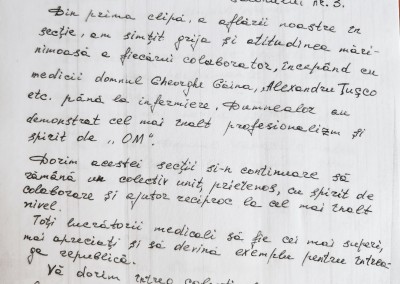 nr. 3.
Din prima clipă, a aflării noastre în
secție, am simțit grija și atitudinea mări-
nimoasă a fiecărui colaborator, începând cu
medicii domnul Gheorghe Găina, Alexandru Țușco
etc. până la infermiere, Dumnealor au
demonstrat cel mai înalt profesionalizm și
spirit de „OM".
Dorim acestei secții si-n continuare să
rămână un colectiv unit, prietenos, cu spirit de
colaborare și ajutor reciproc la cel mai înalt
nivel.
Toți lucrătorii medicali să fie cei mai superi,
mai apreciați și să devină exemplu pentru întrea-
ga republică.
Vă dorim